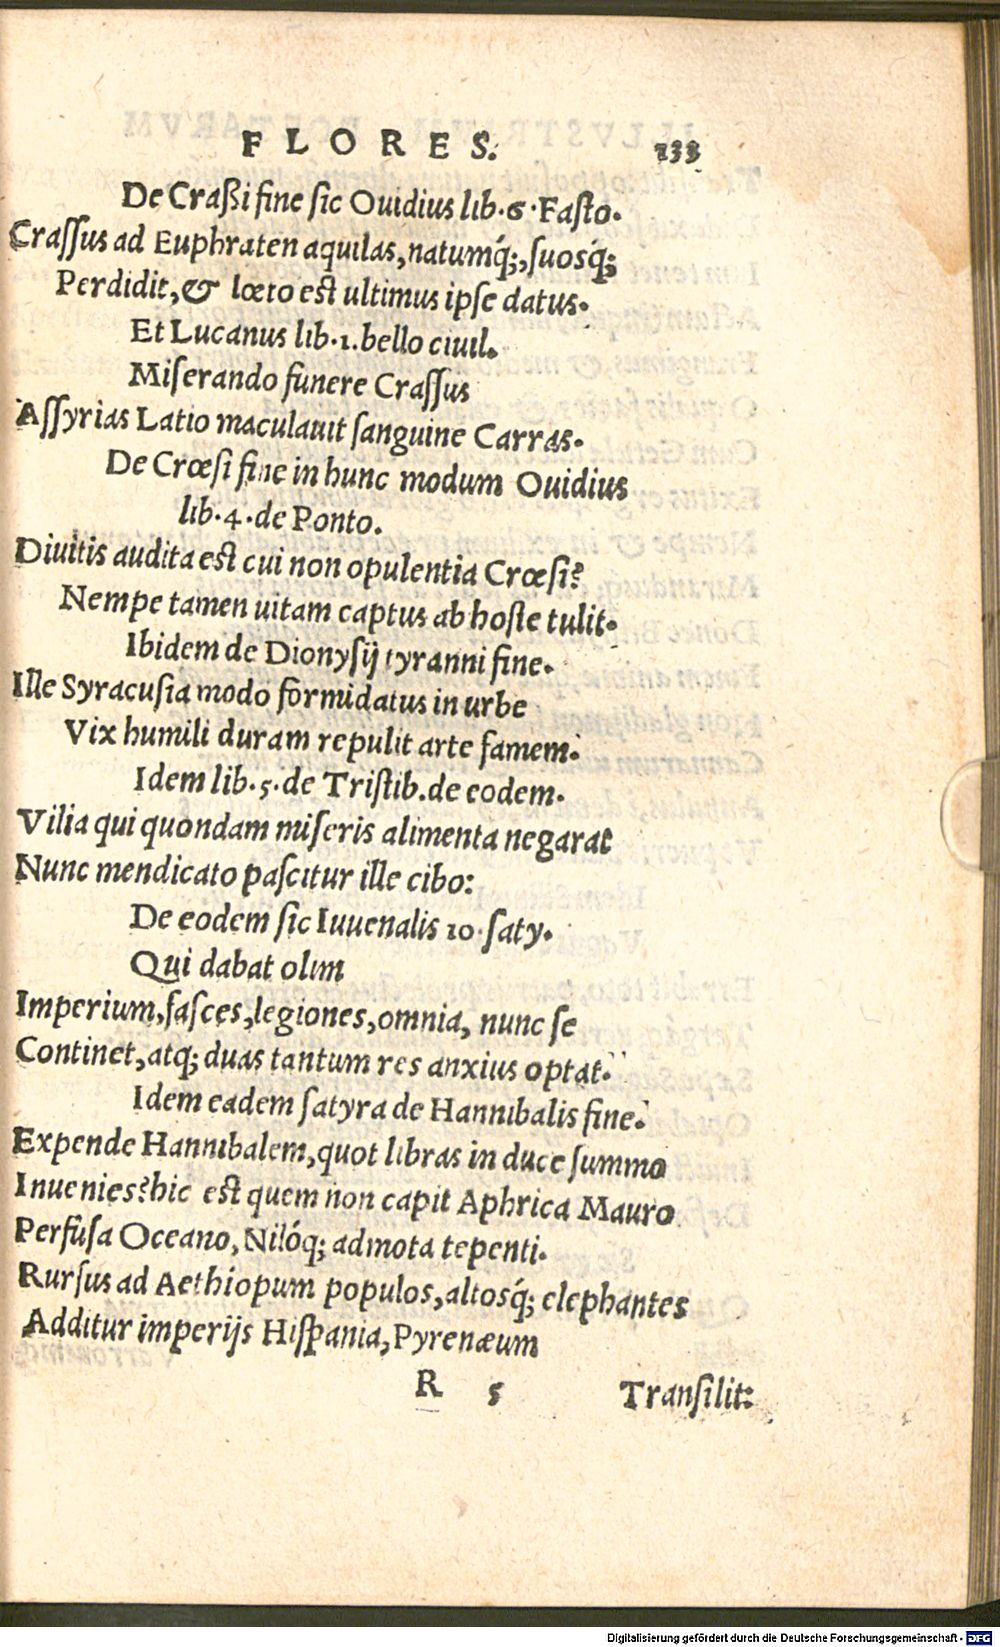 FLORES. 133
De Craßi fine ſic Ouidius lib.6.Faſto.
Craſſus ad Euphraten aquilas,natumq́;,ſuosq́;
Perdidit,& lœto eſt ultimus ipſe datus.
Et Lucanus lib.1.bello ciuil.
Miſerando funere Craſſus
Aſſyrias Latio maculauit ſanguine Carras.
De Crœſi fine in hunc modum Ouidius
lib.4.de Ponto.
Diuitis audita eſt cui non opulentia Crœſi?
Nempe tamen uitam captus ab hoſte tulit.
Ibidem de Dionyſij tyranni fine.
Ille Syracuſia modo formidatus in urbe
Vix humili duram repulit arte famem.
Idem lib.5.de Triſtib.de eodem.
Vilia qui quondam miſeris alimenta negarat
Nunc mendicato paſcitur ille cibo:
De eodem ſic Iuuenalis 10.ſaty.
Qui dabat olim
Imperium,faſces,legiones,omnia, nunc ſe
Continet,atq; duas tantum res anxius optat.
Idem eadem ſatyra de Hannibalis fine.
Expende Hannibalem,quot libras in duce ſummo
Inuenies?hic eſt quem non capit Aphrica Mauro
Perfuſa Oceano, Nilóq; admota tepenti.
Rurſus ad Aethiopum populos,altosq́; elephantes
Additur imperijs Hiſpania,Pyrenæum
R 5 Tranſilit:
Digitalisierung gefördert durch die Deutsche Forschungsgemeinschaft - DFG